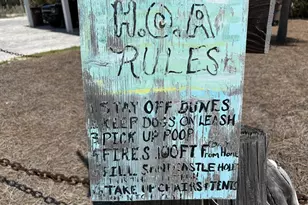 H.O.A
RULES
1 STAY OFF DUNES
2 KEEP DOGS ON LEASH
3 PICK UP POOP
4 FIRES 100FT From Home
5 FILL SANDCASTLE HOLES
6 TAKE UP CHAIRS TENTS